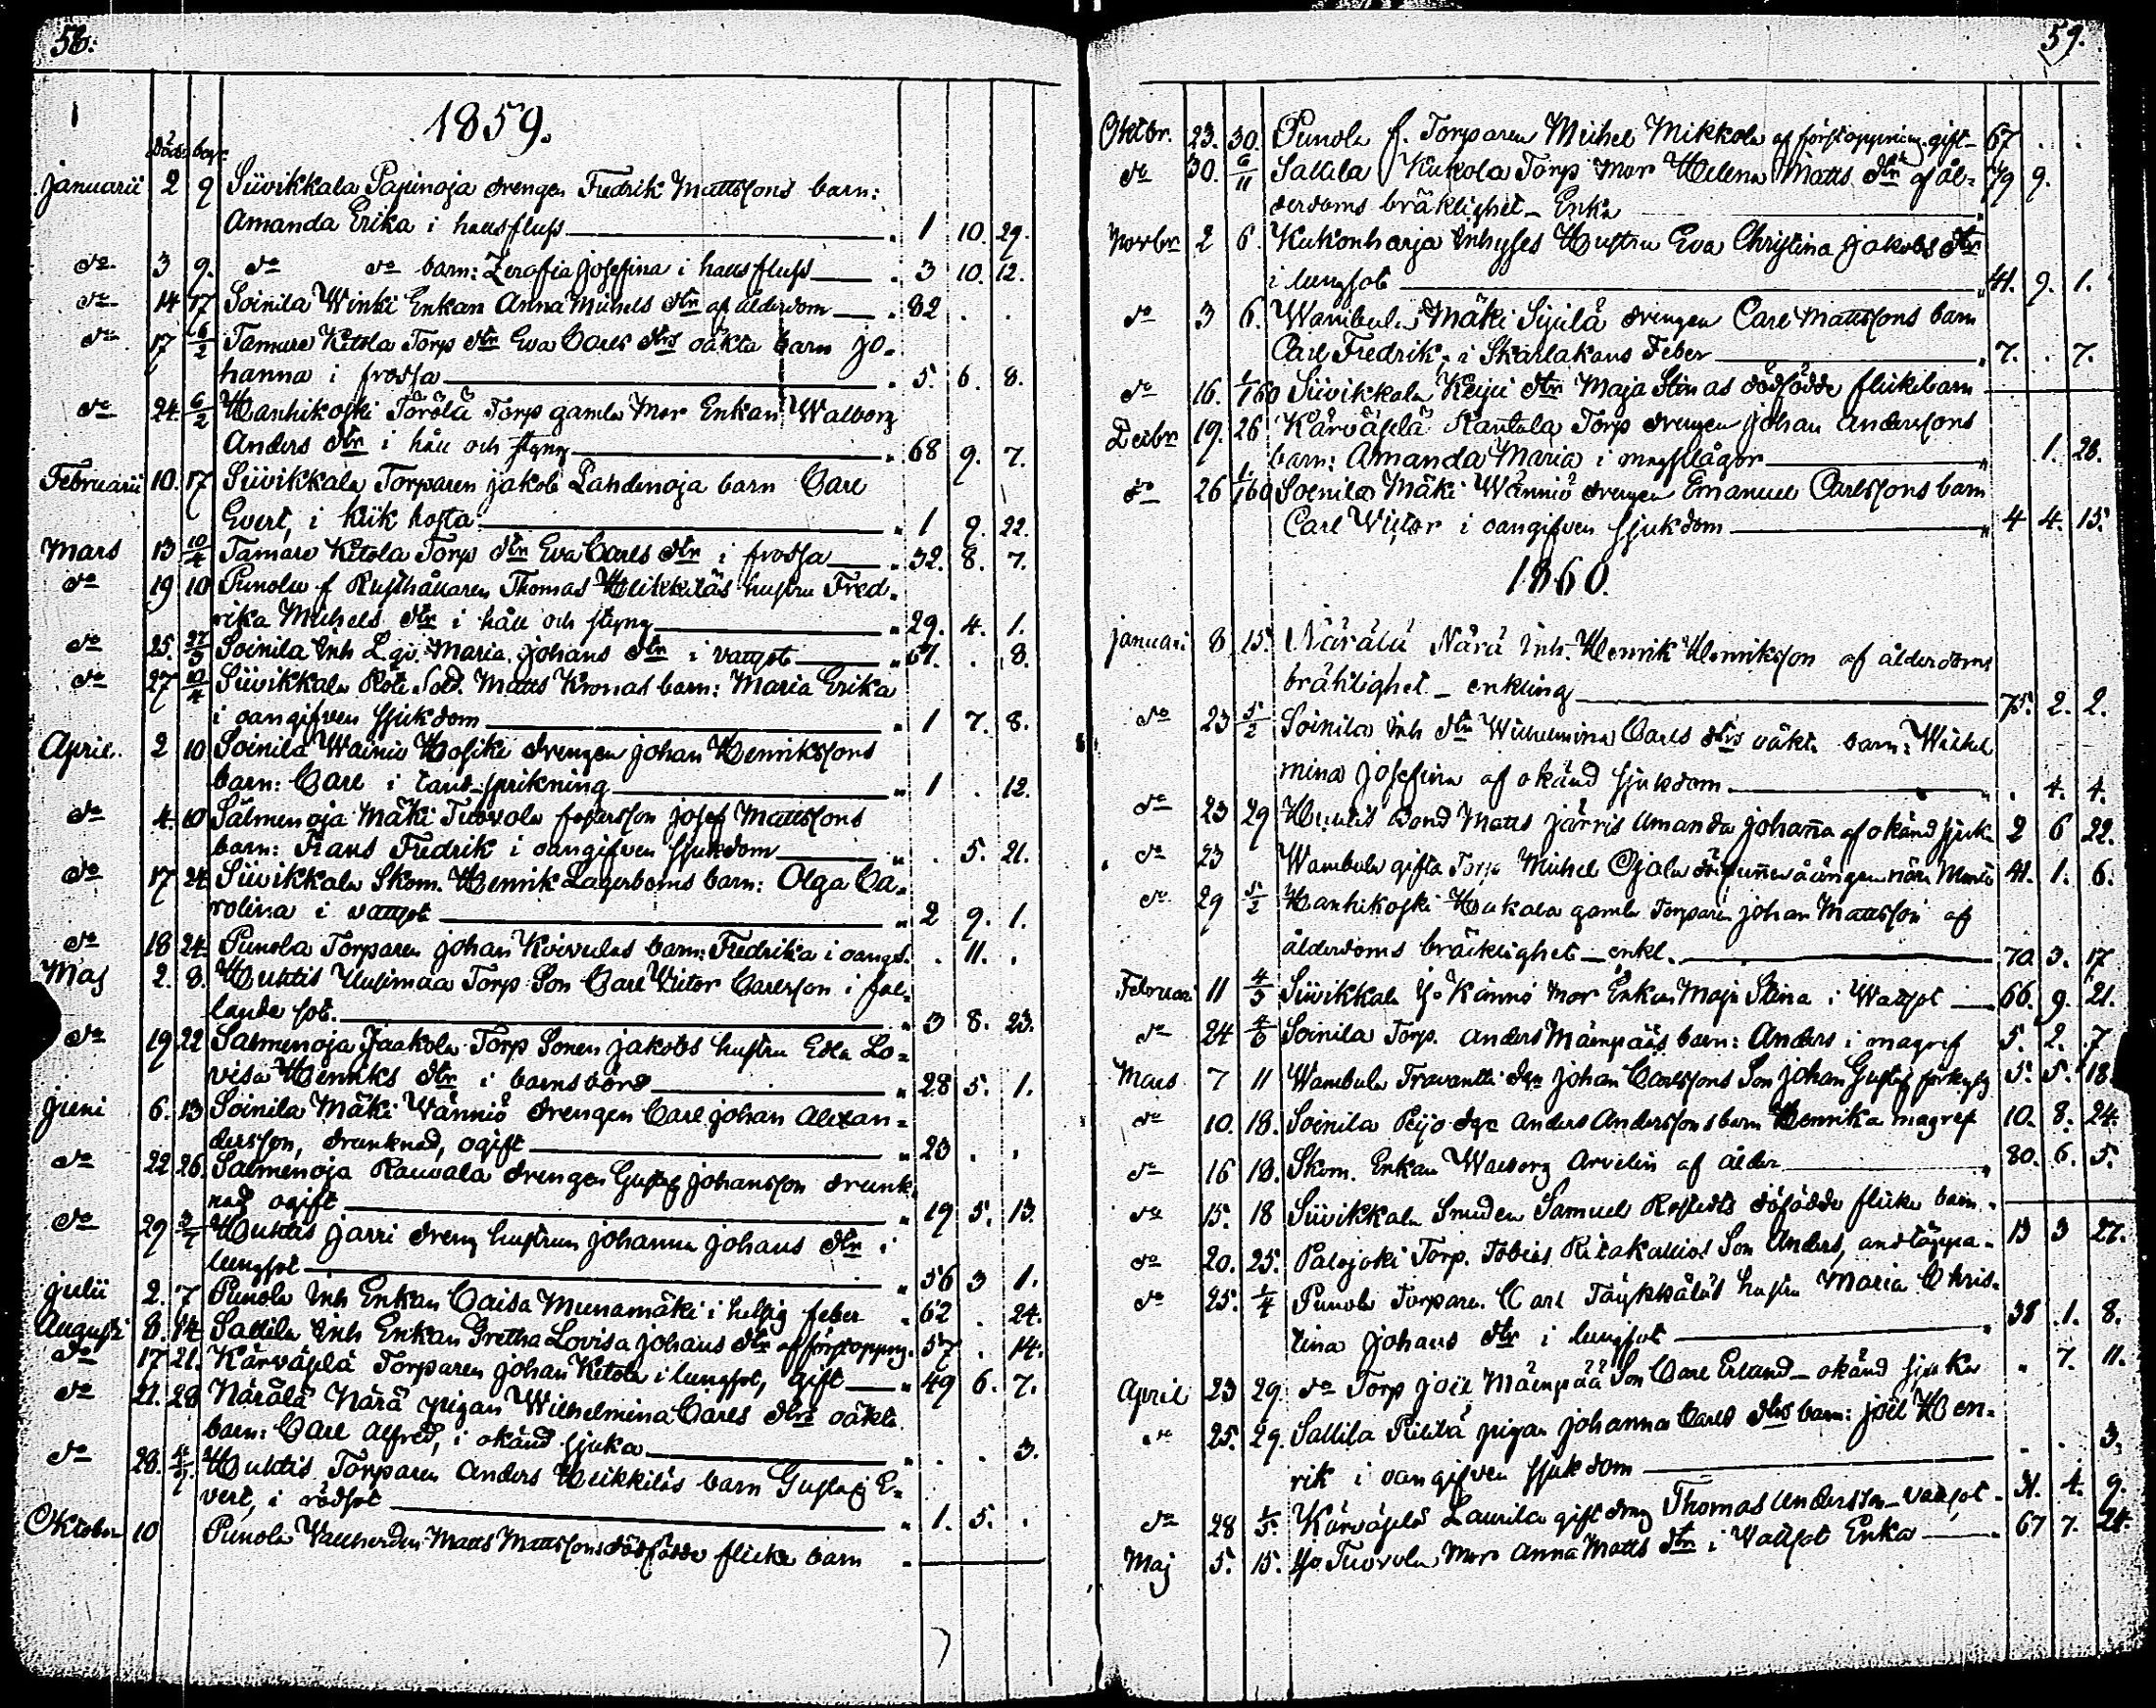 58.
1859.
död. begr.
Januarii 2 9 Siivikkala Papinoja drengen Fredrik Mattssons barn:
Amanda Erika i halsfluss " 1 10. 29.
do 3 9. do do barn: Serafia Josefina i halsfluss " 3 10. 12.
do 14 17 Soinila Winki Enkan Anna Michels dtr af ålderdom " 82 . .
do 17 6/2 Tamare Kitola Torp dtr Eva Carls dtrs oäkta barn Jo-
hanna i frossa " 5. 6. 8.
do 24. 6/2 Hanhikoski Törölä Torp gamla Mor Enkan Walborg
Anders dtr i håll och styng " 68 9. 7.
Februarii 10. 17 Siivikkala Torparen Jakob Lahdenoja barn Carl
Evert, i kik hosta " 1 9. 22.
Mars 13 10/4 Tamare Kitola Torp dtr Eva Carls dtr i frossa " 32. 8. 7.
do 19 10 Punola f Rusthållaren Thomas Heikkiläs hustru Fred-
rika Michels dtr i håll och styng " 29. 4. 1.
do 25. 27/3 Soinila Inh Maria Johans dtr i vattsot " 67. . 8.
do 27 10/4 Siivikkala Rote Sold. Matts Kronas barn: Maria Erika
i oangifven sjukdom " 1 7. 8.
April. 2 10 Soinila Wainio Hosike drengen Johan Henrikssons
barn: Carl i tand-sprikning " 1 . 12.
do 4. 10 Salmenoja Mäki Tuovola Josef Mattssons
barn: Frans Fredrik i oangifven sjukdom " . 5. 21.
do 17 24 Siivikkala Skom. Henrik Lagerboms barn: Olga Ca-
rolina i vattsot " 2 9. 1.
do 18 24. Punola Torparen Johan Koivulas barn: Fredrika i oangf. . 11. .
Maj 2. 8. Huhtis Uusimaa Torp Son Carl Victor Carlsson i fal-
lande sot. " 3 8. 23.
do 19 22 Salmenoja Jaakola Torp Sonen Jakobs hustru Edla Lo-
visa Henriks dtr i barnsbörd " 28 5. 1.
Juni 6. 13 Soinila Mäki Wänniö drengen Carl Johan Alexan-
dersson, drunknad, ogift " 23 . .
do 22 26. Salmenoja Rauvala drengen Gustaf Johansson drunk-
nad ogift " 19 5. 13
do 29 3/7 Huhtis Jarri dreng hustrun Johanna Johans dtr i
lungsot " 56 3 1.
Julii 2. 7 Punola Inh Enkan Caisa Munamäki i hetsig feber " 62 . 24.
Augusti 8. 14 Sallila Inh Enkan Gretha Lovisa Johans dtr af förstoppng. 57 . 14.
do 17 21. Kärväslä Torparen Johan Kitola i lungsot, gift " 49 6. 7.
do 21. 28 Närälä Närä pigan Wilhelmina Carls dtrs oäkta
barn: Carl Alfred, i okänd sjuka " . . 3.
do 28. 4/9. Huhtis Torparen Anders Heikkiläs barn Gustaf E-
vert, i rödsot " 1. 5. .
Oktober 10 Punola Vallherden Matts Mattssons dödfödde flicke barn "
59.
Oktbr. 23. 30. Punola f. Torparen Michel Mikkola af förstoppning gift 67 . .
do 30. 6/11 Sallila Kukola Torp Mor Helena Matts dtr af ål- 79 9.
derdoms bräklighet - Enka
Novbr 2 6. Kukonharja Inhyses Hustru Eva Christina Jakobs dtr
i lungsot " 41. 9. 1.
do 3 6. Wambula Mäki Sijulä drengen Carl Mattssons barn
Carl Fredrik, i Skarlakans Feber " 7. . 7.
do 16. 1/1 60 Siivikkala Keiju dtr Maja Stinas dödfödde flickebarn
Decbr 19. 26 Kärväslä Rantala Torp drengen Johan Anderssons
barn: Amanda Maria i magplågor " 1. 28.
do 26 1/1 60 Soinila Mäki Wänniö drengen Emanuel Carlssons barn
Carl Victor i oangifven sjukdom " 4 4. 15.
1860.
Januari 8 15. Närälä Närä Inh. Henrik Henriksson af ålderdoms
bräklighet - enkling 75. 2. 2.
do 23 5/2 Soinila Inh dtr Wilhelmina Carls dtrs oäkta barn: Wilhel
mina Josefina af okänd sjukdom . 4. 4.
do 23 29 Huhtis Bond Matts Järris Amanda Johanna af okänd sjuk. 2 6 22.
do 23 Wambula gifta Torp Michel Ojala 41. 1. 6.
do 29 5/2 Hanhikoski Haukala gamla Torparen Johan Mattsson af
ålderdoms bräcklighet - enkl. 70 3. 17
Februari 11 4/3 Siivikkala Yo Kännö Mor Enkan Maja Stina i Wattsot 66. 9. 21.
do 24 4/3 Soinila Torp. Anders Mäenpääs barn: Anders i magref 5. 2. 7
Mars 7 11 Wambula Travantti dgn Johan Carlssons Son Johan Gustaf 5. 5. 18
do 10. 18. Soinila Peijo dgn Anders Anderssons barn Henrika magref 10. 8. 24.
do 16 18. Skom. Enkan Walborg Arvelin af ålder " 80. 6. 5.
do 15. 18 Siivikkala Smeden Samuel Rostedts döfödde flicke barn.
do 20. 25. Palojoki Torp. Tobias Ritakallios Son Anders, andtäppa 13 3 27.
do 25. 1/4 Punola Torparen Carl Täykkäläs hustru Maria Chris-
tina Johans dtr i lungsot " 38 1. 8.
April 23 29. do Torp Joel Mäenpää Son Carl Erland - okänd sjuka " 7. 11.
do 25. 29. Sallila Pietilä pigan Johanna Carls dtrs barn: Joel Hen-
rik i oangifven sjukdom . . 3.
do 28 1/5. Kärväslä Laurila gift drng Thomas Andersson - vattsot. 31. 4. 9.
Maj 5. 15. Yo Tuovola Mor Anna Matts dtr i Wattsot Enka " 67 7. 24.